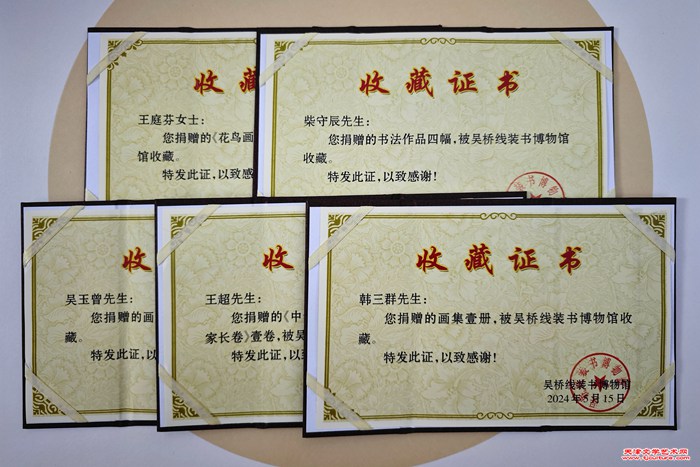 收藏
王庭芬女士：
您捐赠的《花鸟画
馆收藏。
特发此证，以致感
收藏证书
柴守辰先生：
您捐赠的书法作品四幅，被吴桥线装书博物馆
收藏。
特发此证，以致感谢！
收
吴玉曾先生：
您捐赠的画
藏。
特发此证，
收
王超先生：
您捐赠的《中
家长卷》壹卷，被吴
特发此证，以致
收藏证书
韩三群先生：
您捐赠的画集壹册，被吴桥线装书博物馆收
藏。
特发此证，以致感谢！
吴桥线装书博物馆
2024年5月15日
天津文学艺术网